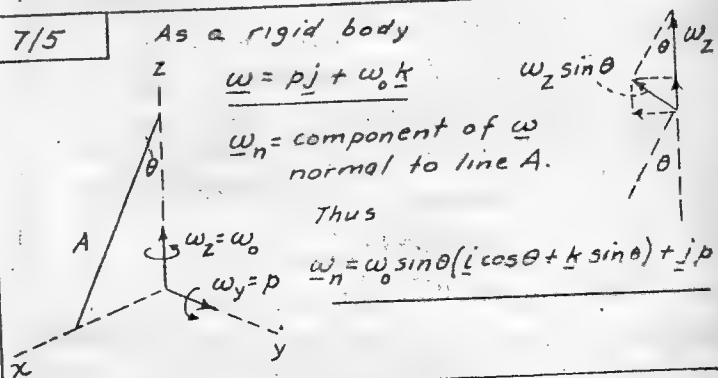 7/5
As a rigid body
ω = pj + ω₀k
ωₙ = component of ω
normal to line A.
Thus
ωₙ = ω₀ sinθ(i cosθ + k sinθ) + jp
z
θ
A
ω_z = ω₀
ω_y = p
x
y
θ
ω_z
ω_z sinθ
θ